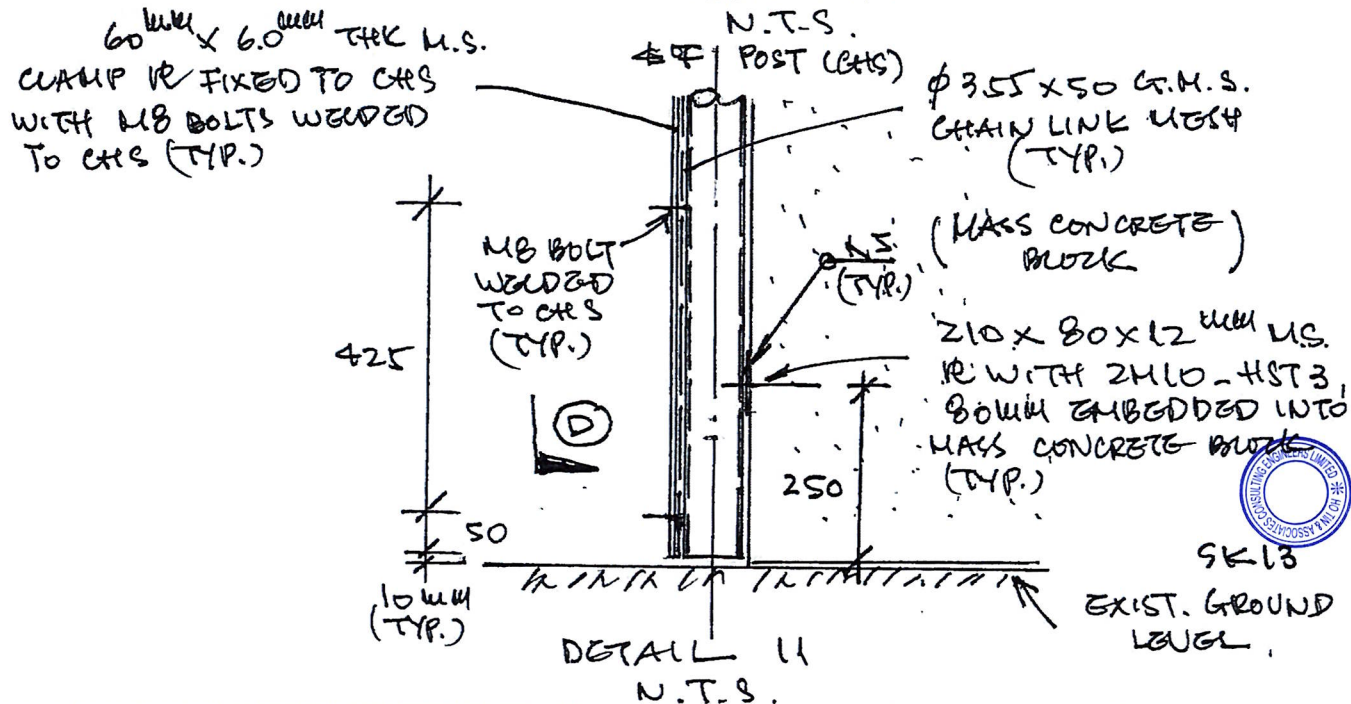 N.T.S.
60mm x 6.0mm THK M.S.
CLAMP PL FIXED TO CHS
WITH M8 BOLTS WELDED
TO CHS (TYP.)
℄ OF POST (CHS)
φ3.55 x 50 G.M.S.
CHAIN LINK MESH
(TYP.)
M8 BOLT
WELDED
TO CHS
(TYP.)
(TYP.)
(MASS CONCRETE
BLOCK)
210 x 80 x 12mm M.S.
PL WITH 2M10-HST3,
80mm EMBEDDED INTO
MASS CONCRETE BLOCK
(TYP.)
425
D
250
50
10mm
(TYP.)
HO TIN & ASSOCIATES CONSULTING ENGINEERS LIMITED
SK13
EXIST. GROUND
LEVEL.
DETAIL 11
N.T.S.